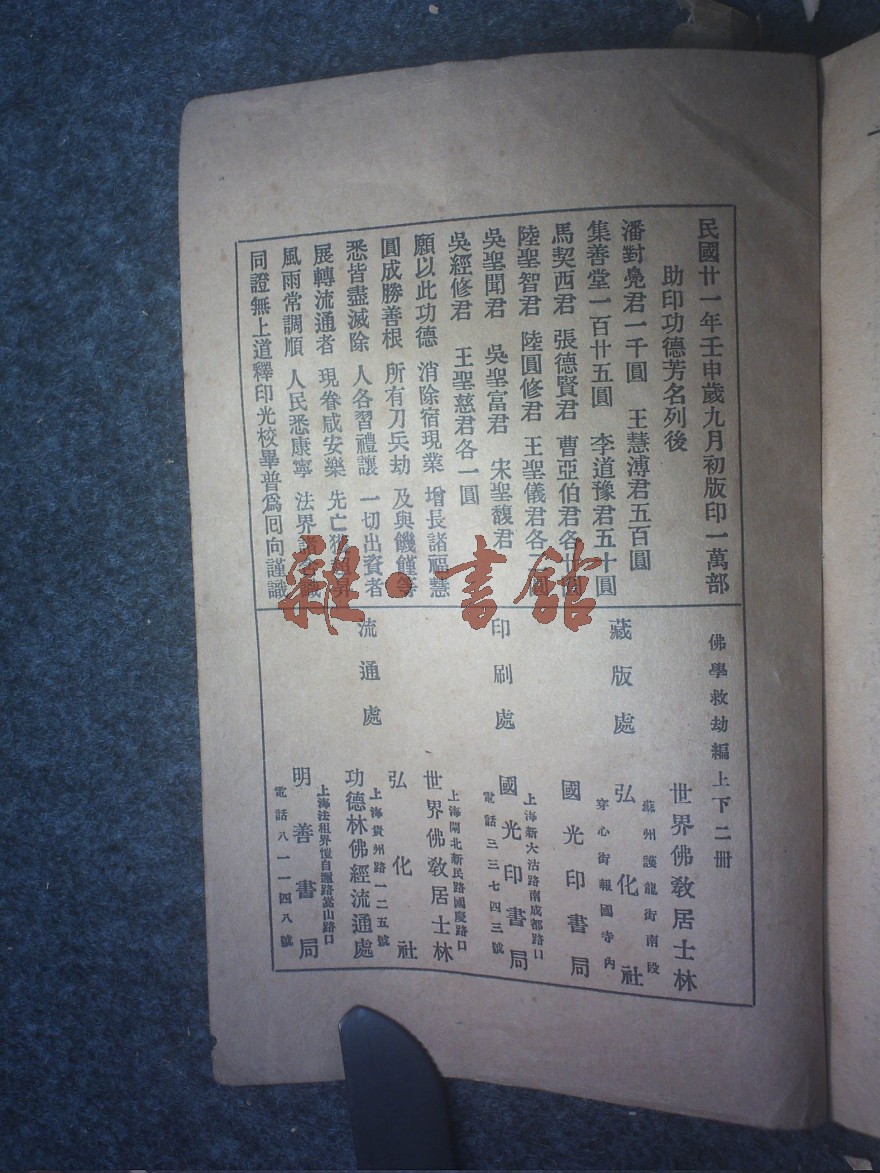 民國廿一年壬申歲九月初版印一萬部
助印功德芳名列後
潘對凫君一千圓 王慧溥君五百圓
集善堂一百廿五圓 李道豫君五十圓
馬契西君 張德賢君 曹亞伯君各十圓
陸聖智君 陸圓修君 王聖儀君各二圓
吳聖聞君 吳聖富君 宋聖馥君
吳經修君 王聖慈君各一圓
願以此功德 消除宿現業 增長諸福慧
圓成勝善根 所有刀兵劫 及與饑饉等
悉皆盡滅除 人各習禮讓 一切出資者
展轉流通者 現眷咸安樂 先亡獲超昇
風雨常調順 人民悉康寧 法界諸含識
同證無上道釋印光校畢普爲回向謹識
佛學救劫編上下二冊
藏版處
世界佛敎居士林
蘇州護龍街南段
弘化社
穿心街報國寺內
國光印書局
印刷處
上海新大沽路南成都路口
國光印書局
電話三三七四三號
流通處
上海閘北新民路國慶路口
世界佛敎居士林
弘化社
上海貴州路一二五號
功德林佛經流通處
上海法租界愷自邇路嵩山路口
明善書局
電話八一一四八號
雜·書館